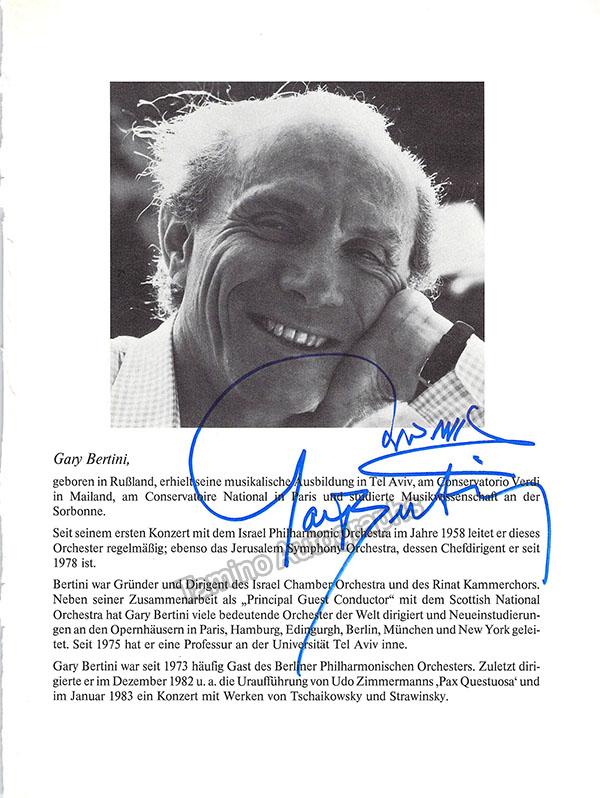 Gary Bertini,
geboren in Rußland, erhielt seine musikalische Ausbildung in Tel Aviv, am Conservatorio Verdi
in Mailand, am Conservatoire National in Paris und studierte Musikwissenschaft an der
Sorbonne.
Seit seinem ersten Konzert mit dem Israel Philharmonic Orchestra im Jahre 1958 leitet er dieses
Orchester regelmäßig; ebenso das Jerusalem Symphony Orchestra, dessen Chefdirigent er seit
1978 ist.
Bertini war Gründer und Dirigent des Israel Chamber Orchestra und des Rinat Kammerchors.
Neben seiner Zusammenarbeit als „Principal Guest Conductor“ mit dem Scottish National
Orchestra hat Gary Bertini viele bedeutende Orchester der Welt dirigiert und Neueinstudierun-
gen an den Opernhäusern in Paris, Hamburg, Edingurgh, Berlin, München und New York gelei-
tet. Seit 1975 hat er eine Professur an der Universität Tel Aviv inne.
Gary Bertini war seit 1973 häufig Gast des Berliner Philharmonischen Orchesters. Zuletzt diri-
gierte er im Dezember 1982 u. a. die Uraufführung von Udo Zimmermanns ‚Pax Questuosa‘ und
im Januar 1983 ein Konzert mit Werken von Tschaikowsky und Strawinsky.
Gary Bertini
Tamino Autographs